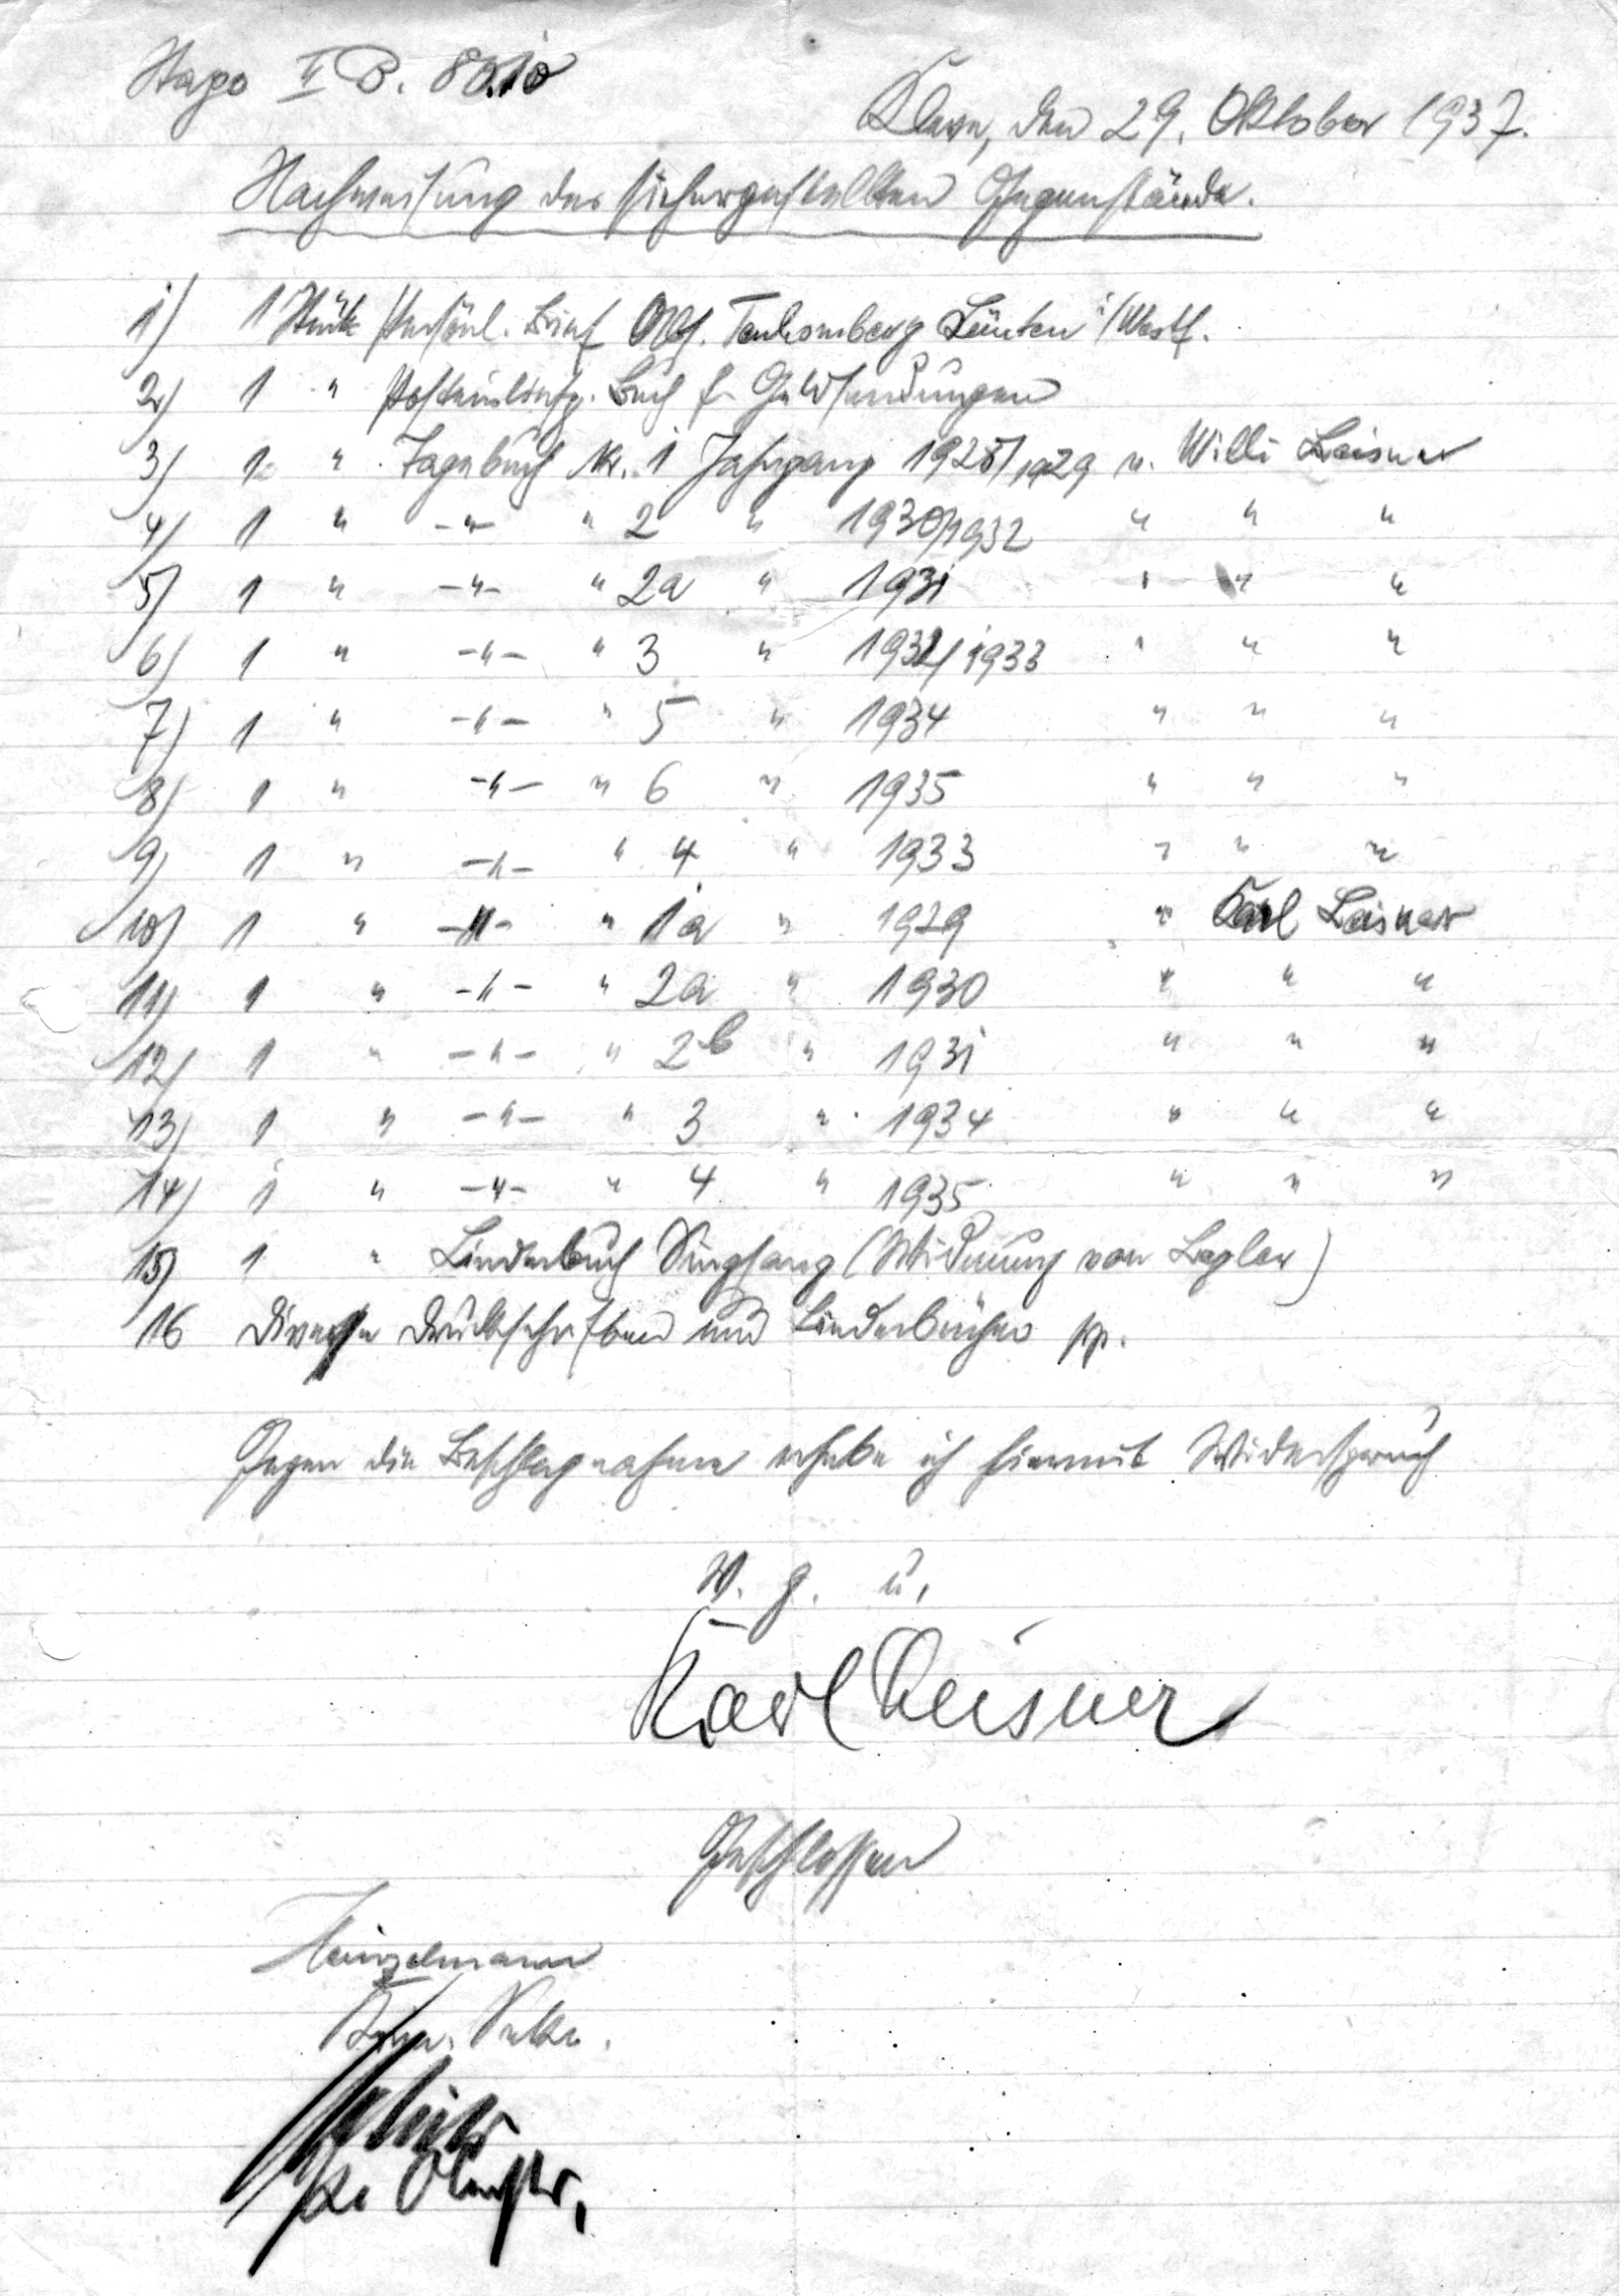 Stapo II B. 80.10
Kleve, den 29. Oktober 1937.
Nachweisung der sichergestellten Gegenstände.
1) 1 Stück Persönl. Brief Tenhomberg Lünten i/Westf.
2) 1 " Posteinliefg. Buch f. Geldsendungen
3) 1 " Tagebuch Nr. 1 Jahrgang 1928/1929 v. Willi Leisner
4) 1 " -"- " 2 " 1930/1932 " " "
5) 1 " -"- " 2a " 1931 " " "
6) 1 " -"- " 3 " 1932/1933 " " "
7) 1 " -"- " 5 " 1934 " " "
8) 1 " -"- " 6 " 1935 " " "
9) 1 " -"- " 4 " 1933 " " "
10) 1 " -"- " 1a " 1929 " Karl Leisner
11) 1 " -"- " 2a " 1930 " " "
12) 1 " -"- " 2b " 1931 " " "
13) 1 " -"- " 3 " 1934 " " "
14) 1 " -"- " 4 " 1935 " " "
15) 1 " Liederbuch Singsang (Widmung von Legler)
16 Diverse Druckschriften und Liederbücher pp.
Gegen die Beschlagnahme erhebe ich hiermit Widerspruch
v. g. u.
Karl Leisner
Geschlossen
Heinzelmann
Krim. Sekr.